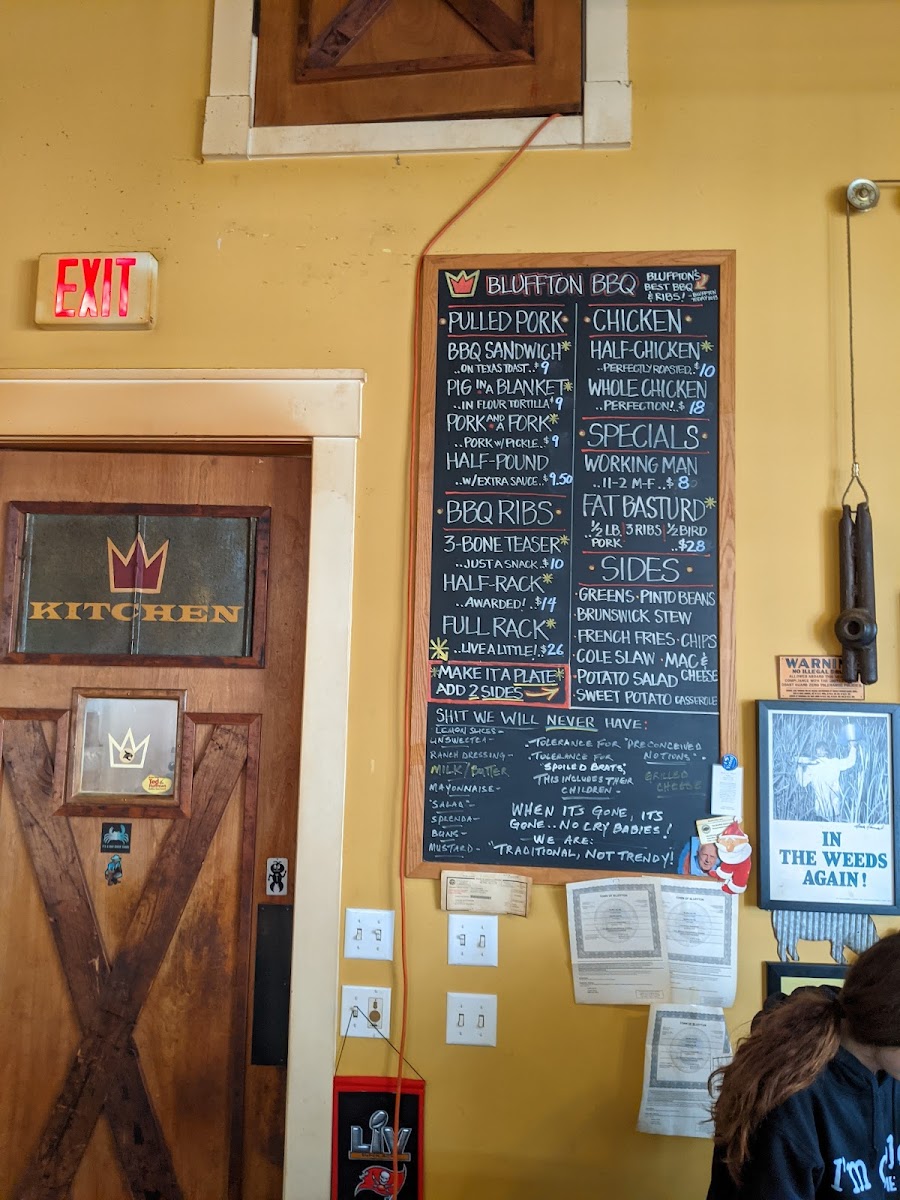 EXIT
KITCHEN
BLUFFTON BBQ
BLUFFTON'S
BEST BBQ
& RIBS!
-BLUFFTON
TODAY
PULLED PORK
BBQ SANDWICH*
..ON TEXAS TOAST..$9
PIG IN A BLANKET*
..IN FLOUR TORTILLA $9
PORK AND A FORK*
..PORK W/ PICKLE..$9
HALF-POUND
..W/EXTRA SAUCE..$9.50
BBQ RIBS
3-BONE TEASER*
..JUST A SNACK..$10
HALF-RACK*
..AWARDED!..$14
FULL RACK*
..LIVE A LITTLE!..$26
*MAKE IT A PLATE*
ADD 2 SIDES
CHICKEN
HALF-CHICKEN*
..PERFECTLY ROASTED..$10
WHOLE CHICKEN
..PERFECTION!..$18
SPECIALS
WORKING MAN
..11-2 M-F..$8
FAT BASTURD*
..½ LB. PORK | 3 RIBS | ½ BIRD
..$28
SIDES
·GREENS·PINTO BEANS
·BRUNSWICK STEW
·FRENCH FRIES·CHIPS
·COLE SLAW·MAC & CHEESE
·POTATO SALAD
·SWEET POTATO CASSEROLE
SHIT WE WILL NEVER HAVE:
LEMON SLICES-
UNSWEETEA-
RANCH DRESSING-
MILK/BUTTER
MAYONNAISE-
"SALAD"-
SPLENDA-
BUNS-
MUSTARD-
·TOLERANCE FOR "PRECONCEIVED
NOTIONS"·
·TOLERANCE FOR
"SPOILED BRATS,"
THIS INCLUDES THEIR
CHILDREN-
GRILLED
CHEESE
WHEN ITS GONE, ITS
GONE..NO CRY BABIES!
WE ARE:
"TRADITIONAL, NOT TRENDY!
WARNIN
IN
THE WEEDS
AGAIN!
TOWN OF BLUFFTON
TOWN OF BLUFFTON
TOWN OF BLUFFTON
LIV
I'm